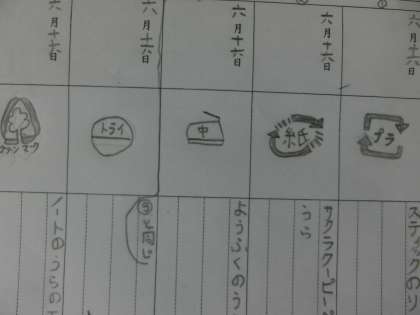 六月十六日
プラ
スティックのり
六月十六日
紙
サクラクーピーペ
うら
六月十六日
中
ようふくのう
六月十六日
トライ
③と同じ
六月十七日
ノートのうらの